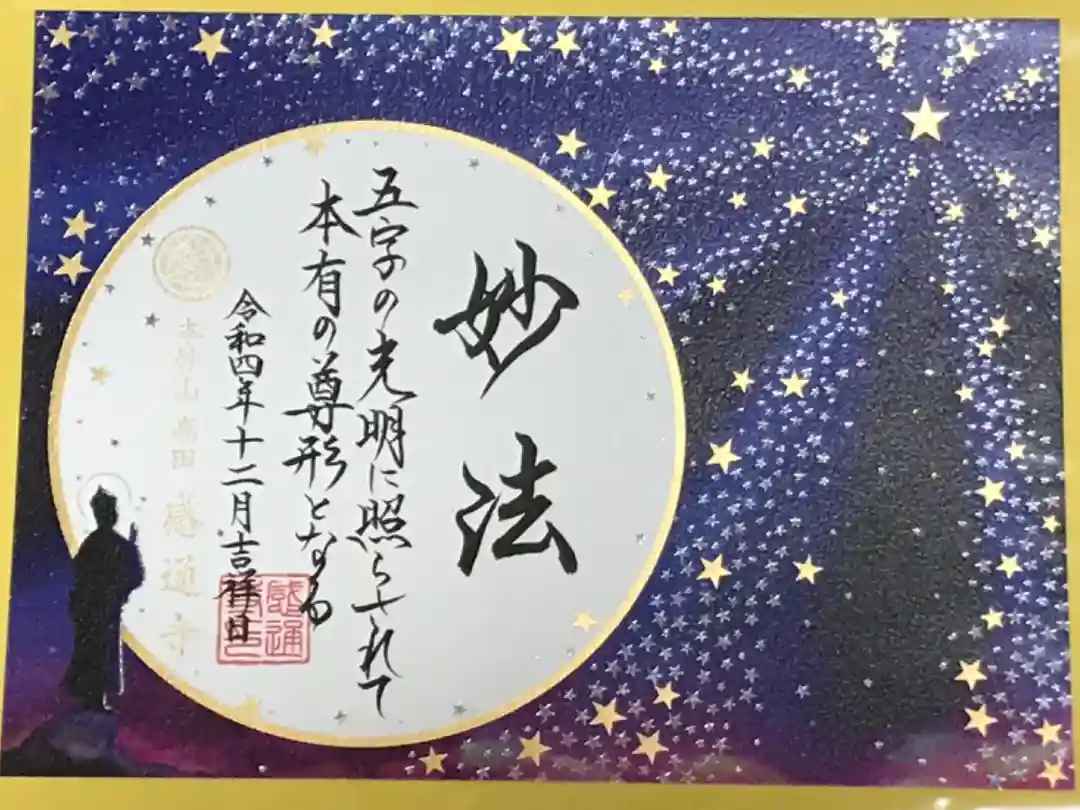 妙法
五字の光明に照らされて
本有の尊形となる
令和四年十二月吉祥日
本妙山 高田 感通寺
感通